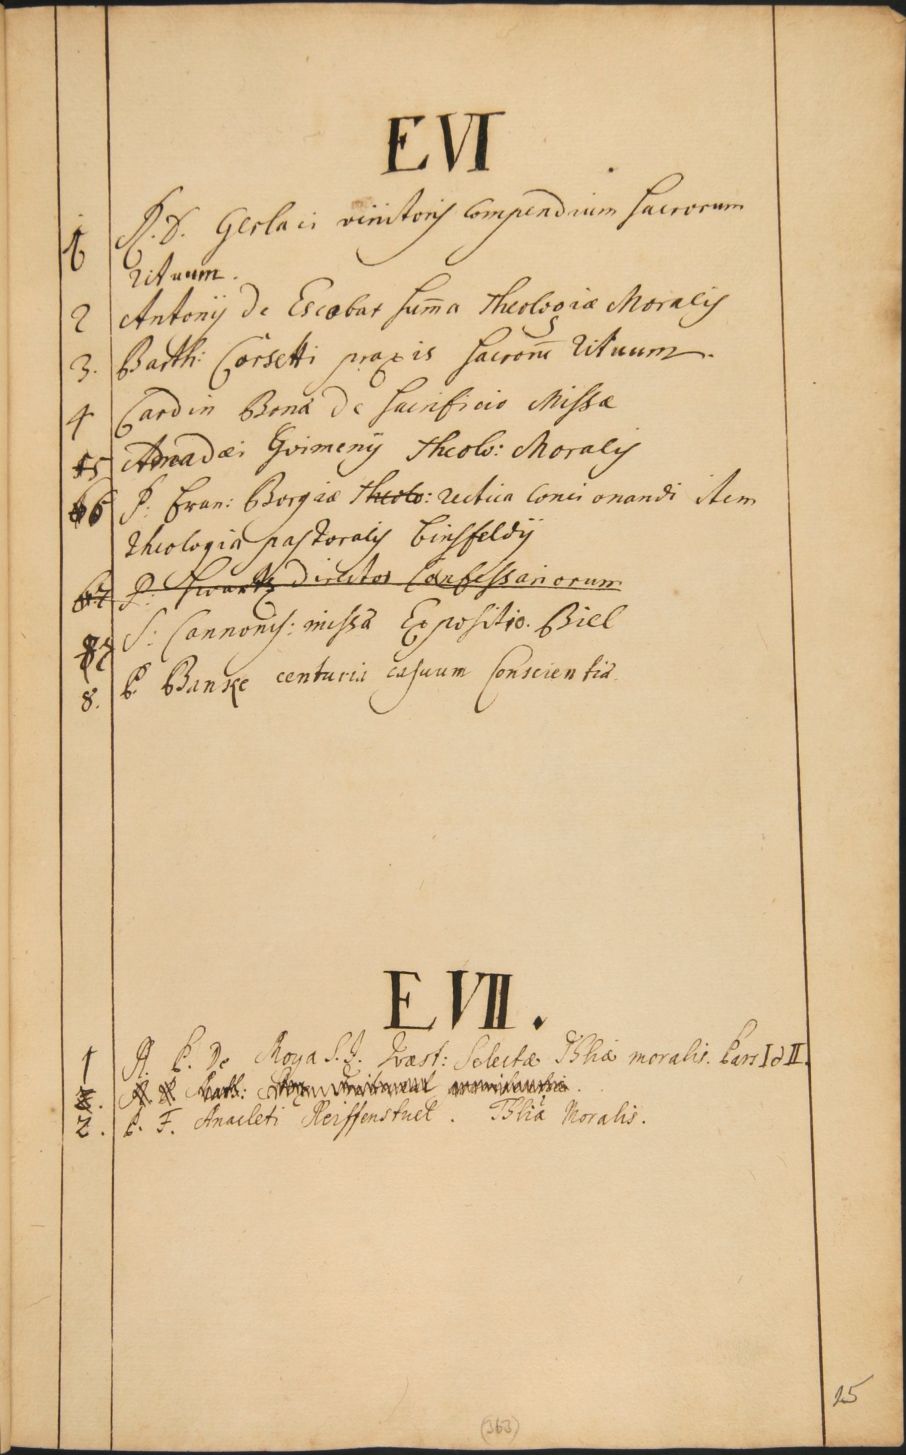 E VI
1 R. D. Gerlaci vinitoris Compendium Sacrorum
rituum.
2 Antonij de Escobar Sum̄a Theologiæ Moralis
3. Barth: Corsetti praxis Sacrorū rituum.
4 Cardin Bona de Sacrificio Missæ
5 Amadæi Gvimenij Theolo: Moralis
6 P: Fran: Borgiæ Theolo: rectica Concionandi item
theologia pastoralis Binsfeldij
67 P: director Confessariorum
7 S: Cannonis: missa Expositio. Biel
8. P. Banske centuria casuum Conscientia
E VII.
1 R. P. De Moya S.J. Quæst: Selectæ Thliæ moralis. Pars I d II.
2. P. F. Anacleti Reiffenstuel. Thlia Moralis.
25
(363)